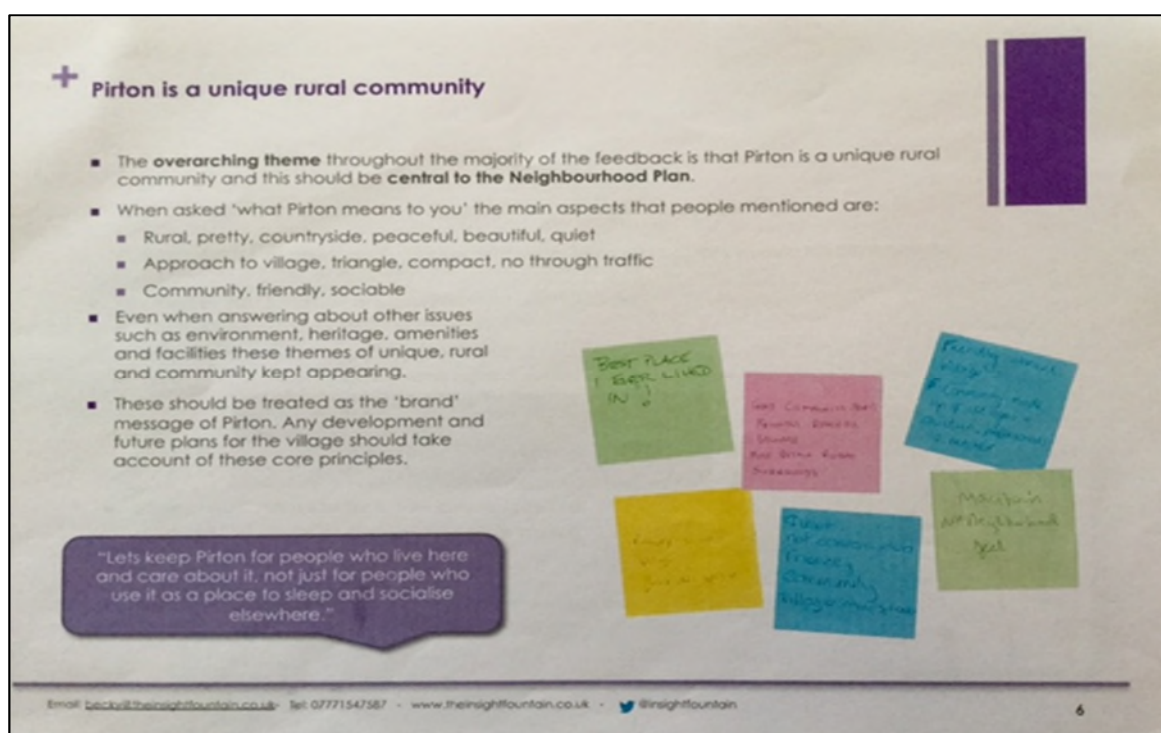 + Pirton is a unique rural community
▪ The overarching theme throughout the majority of the feedback is that Pirton is a unique rural
community and this should be central to the Neighbourhood Plan.
▪ When asked 'what Pirton means to you' the main aspects that people mentioned are:
▪ Rural, pretty, countryside, peaceful, beautiful, quiet
▪ Approach to village, triangle, compact, no through traffic
▪ Community, friendly, sociable
▪ Even when answering about other issues
such as environment, heritage, amenities
and facilities these themes of unique, rural
and community kept appearing.
▪ These should be treated as the 'brand'
message of Pirton. Any development and
future plans for the village should take
account of these core principles.
"Lets keep Pirton for people who live here
and care about it, not just for people who
use it as a place to sleep and socialise
elsewhere."
BEST PLACE
I EVER LIVED
IN !
Friendly
Community made
Quiet
not
Friendly
Community
Village
Maintain
feel
Email: becky@theinsightfountain.co.uk- Tel: 07771547587 - www.theinsightfountain.co.uk - @insightfountain
6